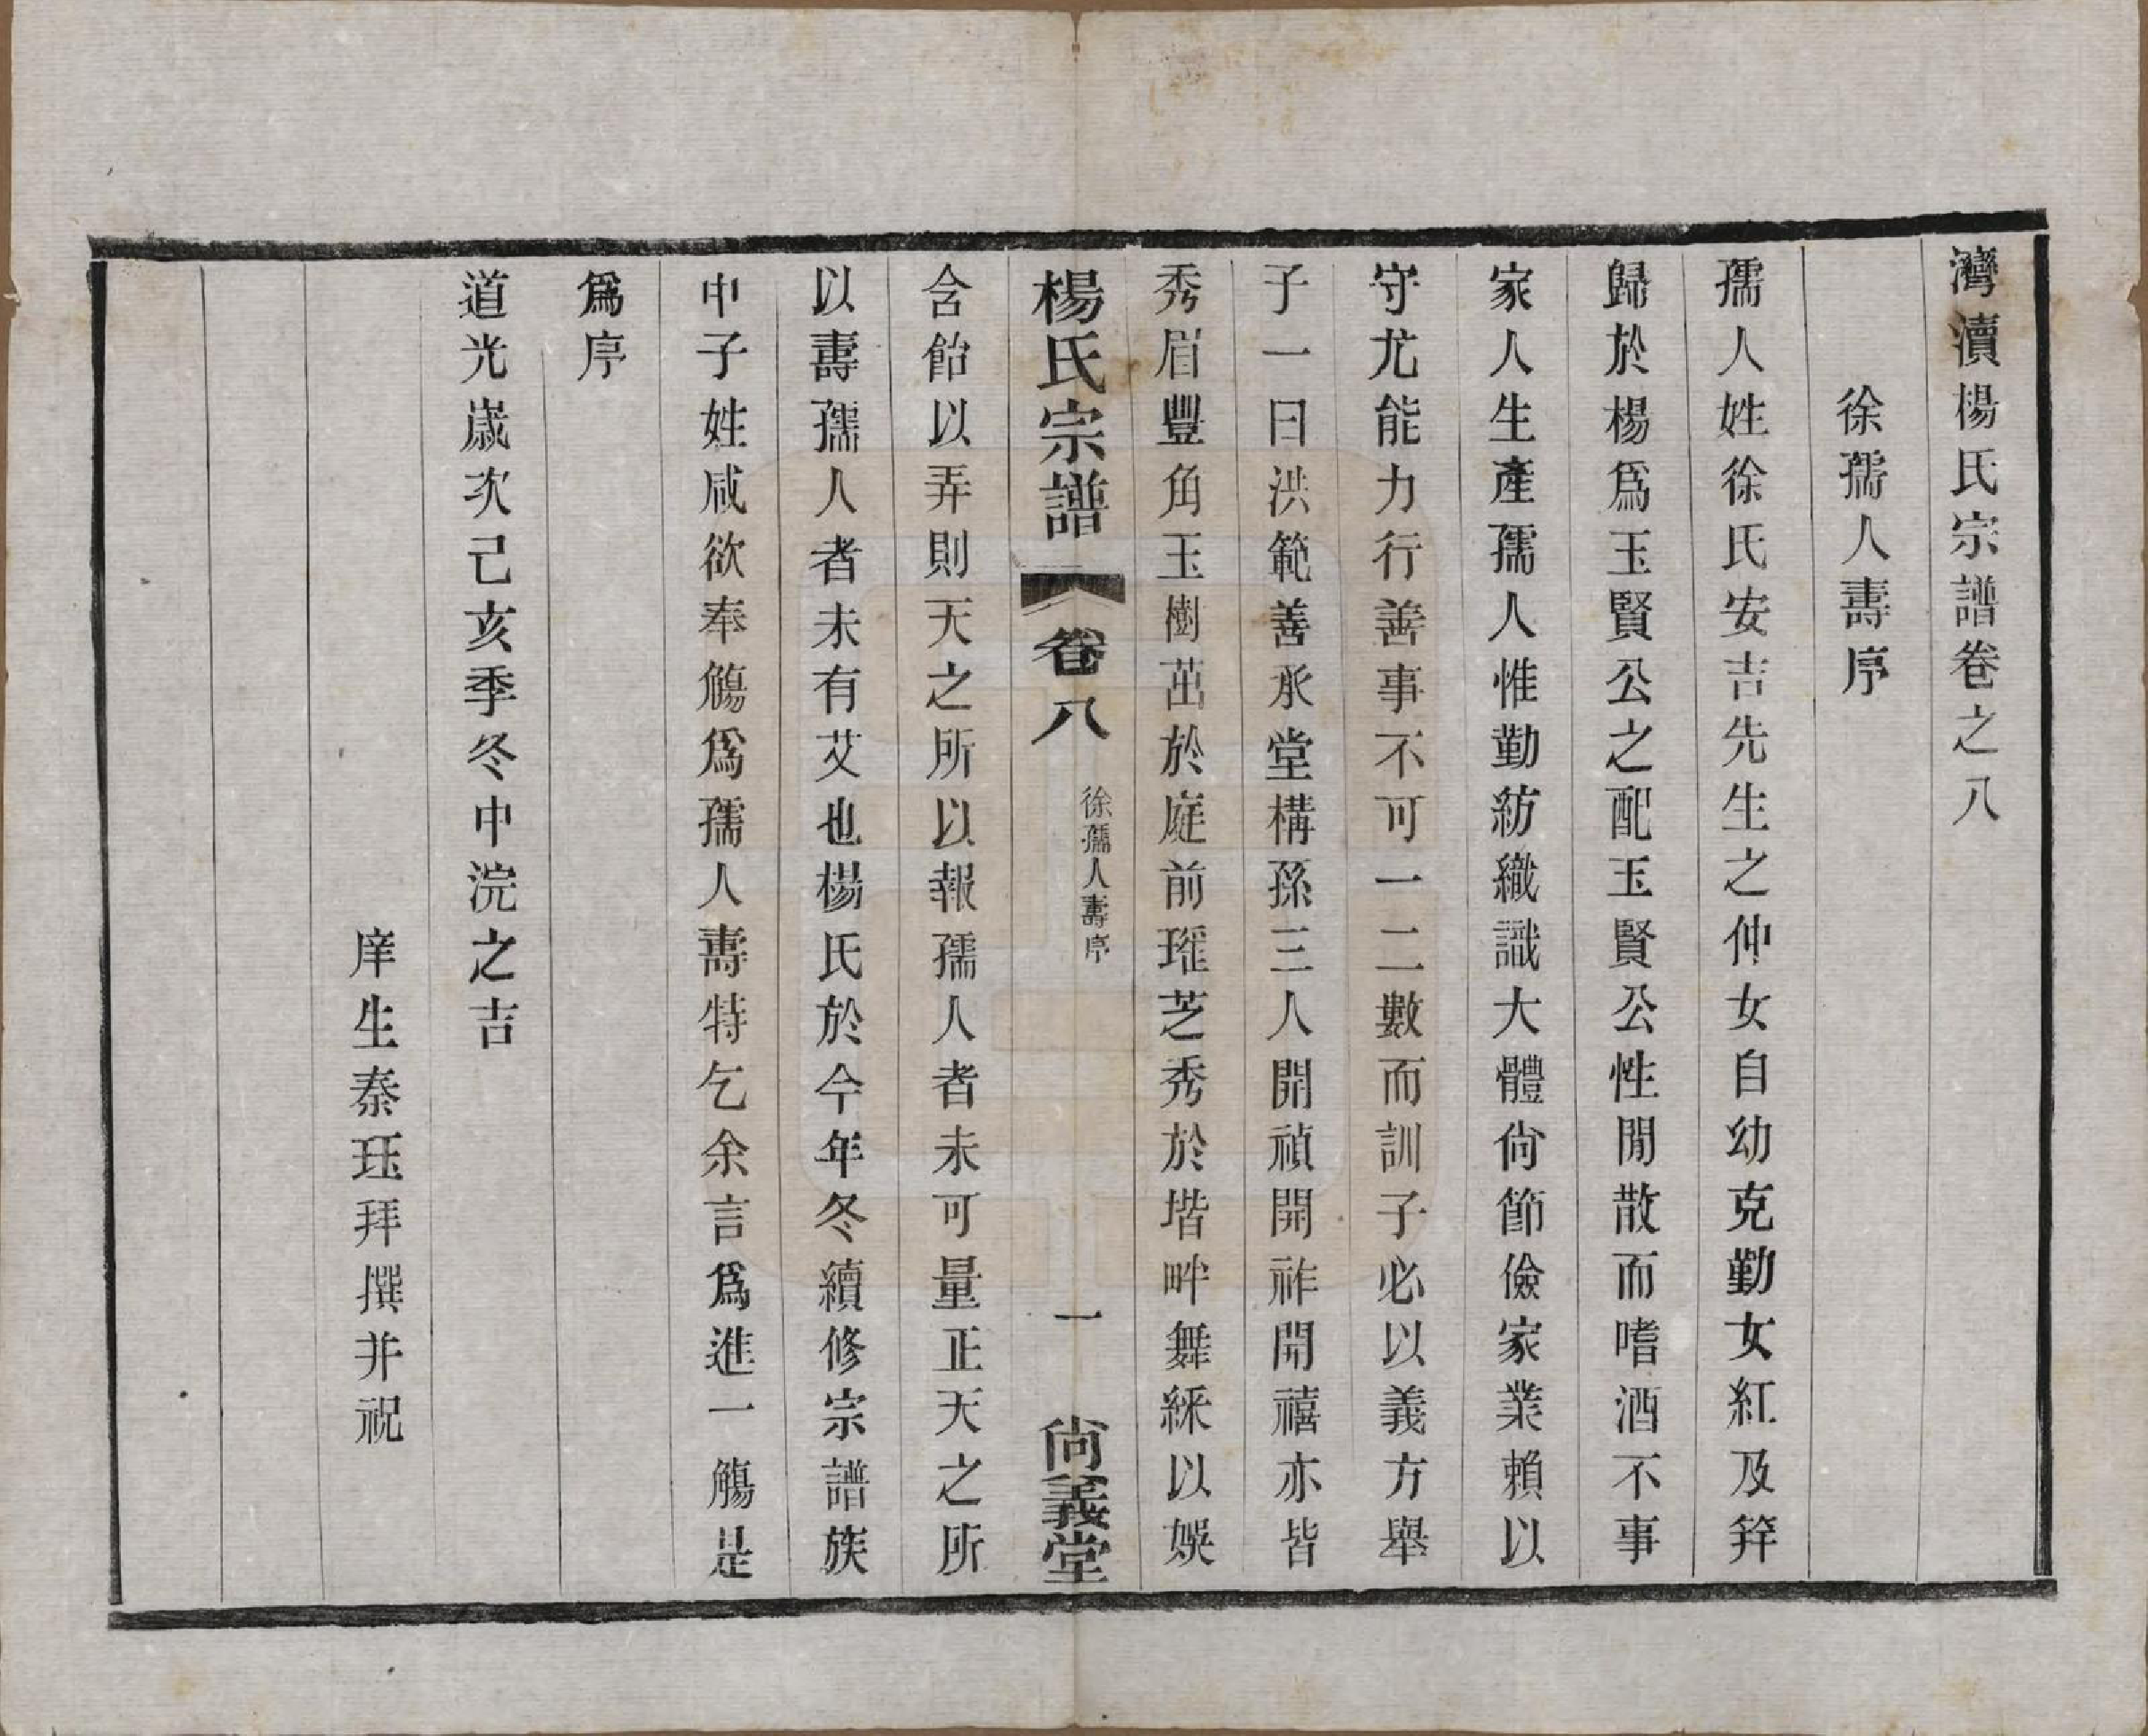 灣瀆楊氏宗譜卷之八
徐孺人壽序
孺人姓徐氏安吉先生之仲女自幼克勤女紅及笄
歸於楊爲玉賢公之配玉賢公性閒散而嗜酒不事
家人生產孺人惟勤紡織識大體尙節儉家業賴以
守尤能力行善事不可一二數而訓子必以義方舉
子一曰洪範善承堂構孫三人開禎開祚開禧亦皆
秀眉豐角玉樹茁於庭前瑤芝秀於堦畔舞綵以娛
楊氏宗譜 卷八 徐孺人壽序 一 尙義堂
含飴以弄則天之所以報孺人者未可量正天之所
以壽孺人者未有艾也楊氏於今年冬續修宗譜族
中子姓咸欲奉觴爲孺人壽特乞余言爲進一觴是
爲序
道光歲次己亥季冬中浣之吉
庠生秦珏拜撰并祝